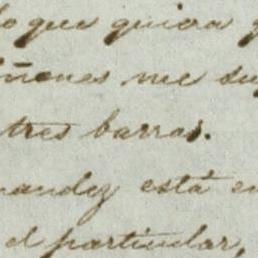 lo que quiera
iñones me su
tres barras.
nandez está en
el particular,